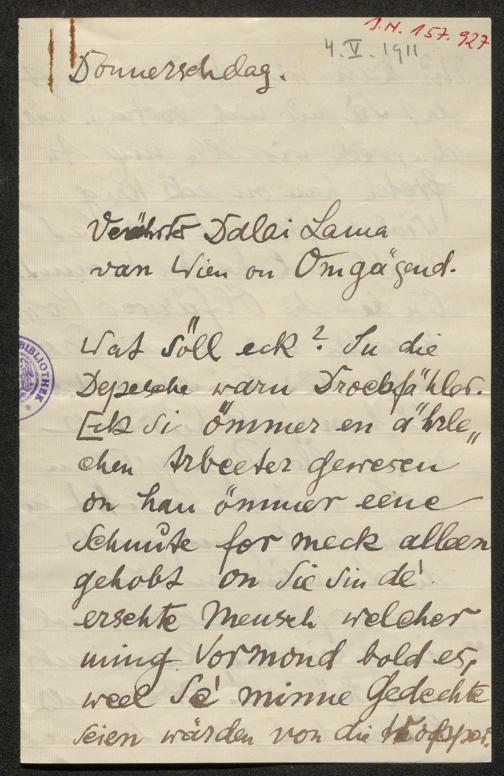 I.N. 157.927
4.V.1911
Donnerschdag.
Verährter Dalai Lama
van Wien on Omgägend.
Wat söll eck? In die
Depesche warn Drockfähler.
Eck si ömmer en ährle„
chen Arbeeter gewesen
on han ömmer eene
Schnute for meck alleen
gehobt on Sie sin dé
erschte Mensch welcher
ming Vormond bold es,
weel Sé minne Gedechte
seien wärden von die
BIBLIOTHEK